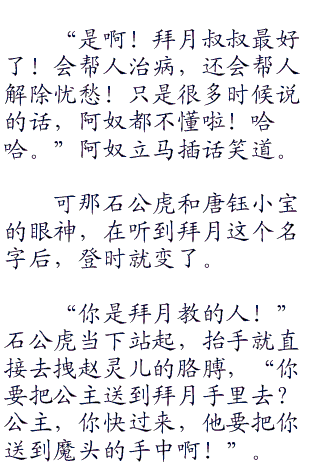 “是啊！拜月叔叔最好
了！会帮人治病，还会帮人
解除忧愁！只是很多时候说
的话，阿奴都不懂啦！哈
哈。”阿奴立马插话笑道。
可那石公虎和唐钰小宝
的眼神，在听到拜月这个名
字后，登时就变了。
“你是拜月教的人！”
石公虎当下站起，抬手就直
接去拽赵灵儿的胳膊，“你
要把公主送到拜月手里去？
公主，你快过来，他要把你
送到魔头的手中啊！”。